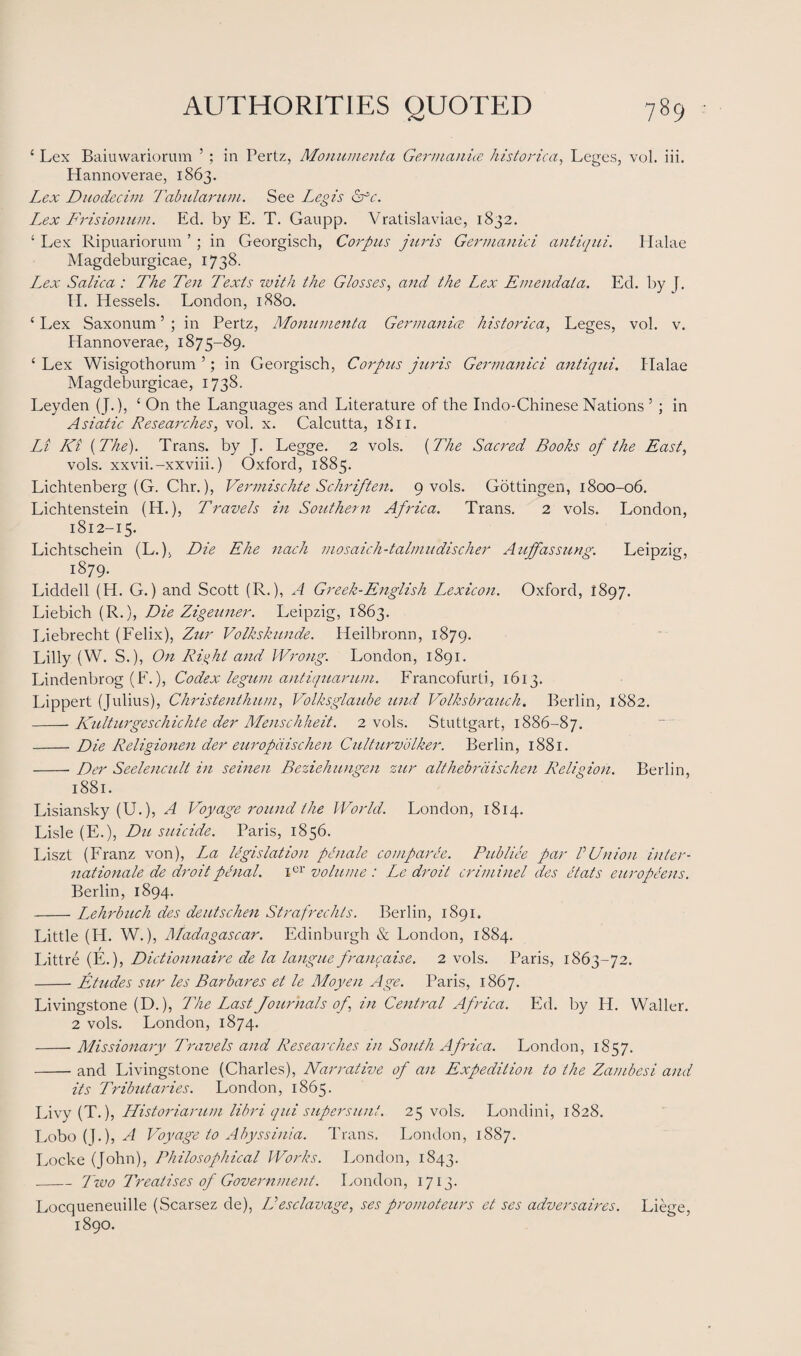 AUTHORITIES QUOTED 789
‘ Lex Baiuwariorum ’ ; in Pertz, Monumenta Germaniæ historica, Leges, vol. iii.
Hannoverae, 1863.
Lex Duodecim Tabularum. See Legis &c.
Lex Frisionum. Ed. by E. T. Gaupp. Vratislaviae, 1832.
‘ Lex Ripuariorum ’ ; in Georgisch, Corpus juris Germanici antiqui. Halae
Magdeburgicae, 1738.
Lex Salica : The Ten Texts with the Glosses, and the Lex Emendata. Ed. by J.
H. Hessels. London, 1880.
‘ Lex Saxonum ’ ; in Pertz, Monumenta Germaniæ historica, Leges, vol. v.
Hannoverae, 1875-89.
‘ Lex Wisigothorum ’ ; in Georgisch, Corpus juris Germanici antiqui. Halae
Magdeburgicae, 1738.
Leyden (J.), ‘ On the Languages and Literature of the Indo-Chinese Nations ’ ; in
Asiatic Researches, vol. x. Calcutta, 1811.
Lî Kî (The). Trans. by J. Legge. 2 vols. (The Sacred Books of the East,
vols. xxvii.-xxviii.) Oxford, 1885.
Lichtenberg (G. Chr.), Vermischte Schriften. 9 vols. Göttingen, 1800-06.
Lichtenstein (H.), Travels in Southern Africa. Trans. 2 vols. London,
1812-15.
Lichtschein (L.), Die Ehe nach mosaich-talmudischer Auffassung. Leipzig,
1879.
Liddell (H. G.) and Scott (R.), A Greek-English Lexicon. Oxford, 1897.
Liebich (R.), Die Zigeuner. Leipzig, 1863.
Liebrecht (Felix), Zur Volkskunde. Heilbronn, 1879.
Lilly (W. S.), On Right and Wrong. London, 1891.
Lindenbrog (F.), Codex legum antiquarum. Francofurti, 1613.
Lippert (Julius), Christenthum, Volksglaube und Volksbrauch. Berlin, 1882.
—— Kulturgeschichte der Menschheit. 2 vols. Stuttgart, 1886-87.
—— Die Religionen der europäischen Culturvölker. Berlin, 1881.
—— Der Seelencult in seinen Beziehungen zur althebräischen Religion. Berlin,
1881.
Lisiansky (U.), A Voyage round the World. London, 1814.
Lisle (E.), Du suicide. Paris, 1856.
Liszt (Franz von), La législation pénale comparée. Publiée par l’Union inter-
nationale de droit pénal. 1er volume : Le droit criminel des états européens.
Berlin, 1894.
—— Lehrbuch des deutschen Strafrechts. Berlin, 1891.
Little (H. W.), Madagascar. Edinburgh & London, 1884.
Littré (É.), Dictionnaire de la langue française. 2 vols. Paris, 1863-72.
—— Études sur les Barbares et le Moyen Age. Paris, 1867.
Livingstone (D.), The Last Journals of, in Central Africa. Ed. by H. Waller.
2 vols. London, 1874.
—— Missionary Travels and Researches in South Africa. London, 1857.
—— and Livingstone (Charles), Narrative of an Expedition to the Zambesi and
its Tributaries. London, 1865.
Livy (T.), Historiarum libri qui supersunt. 25 vols. Londini, 1828.
Lobo (J.), A Voyage to Abyssinia. Trans. London, 1887.
Locke (John), Philosophical Works. London, 1843.
—— Two Treatises of Government. London, 1713.
Locqueneuille (Scarsez de), L’esclavage, ses promoteurs et ses adversaires. Liège,
1890.